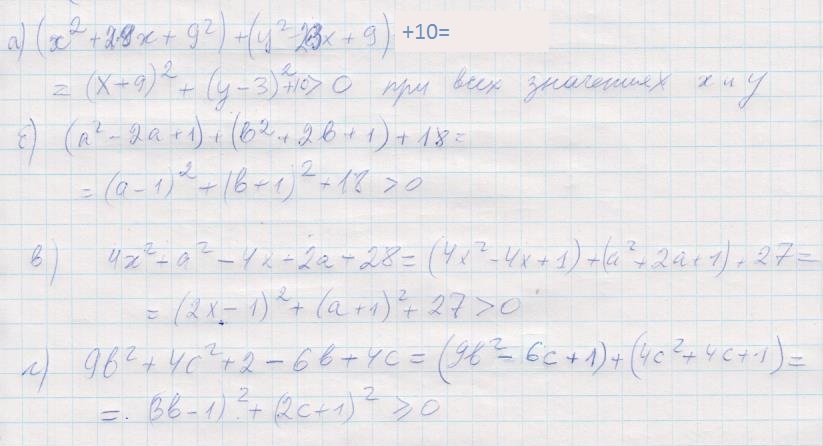 а) (x² + 2·9x + 9²) + (y² - 2·3x + 9) +10=
= (x+9)² + (y-3)² +10 > 0 при всех значениях x и y
б) (a² - 2a + 1) + (b² + 2b + 1) + 18 =
= (a-1)² + (b+1)² + 18 > 0
в) 4x² + a² - 4x + 2a + 28 = (4x² - 4x + 1) + (a² + 2a + 1) + 27 =
= (2x - 1)² + (a + 1)² + 27 > 0
г) 9b² + 4c² + 2 - 6b + 4c = (9b² - 6c + 1) + (4c² + 4c + 1) =
= (3b - 1)² + (2c + 1)² ⩾ 0